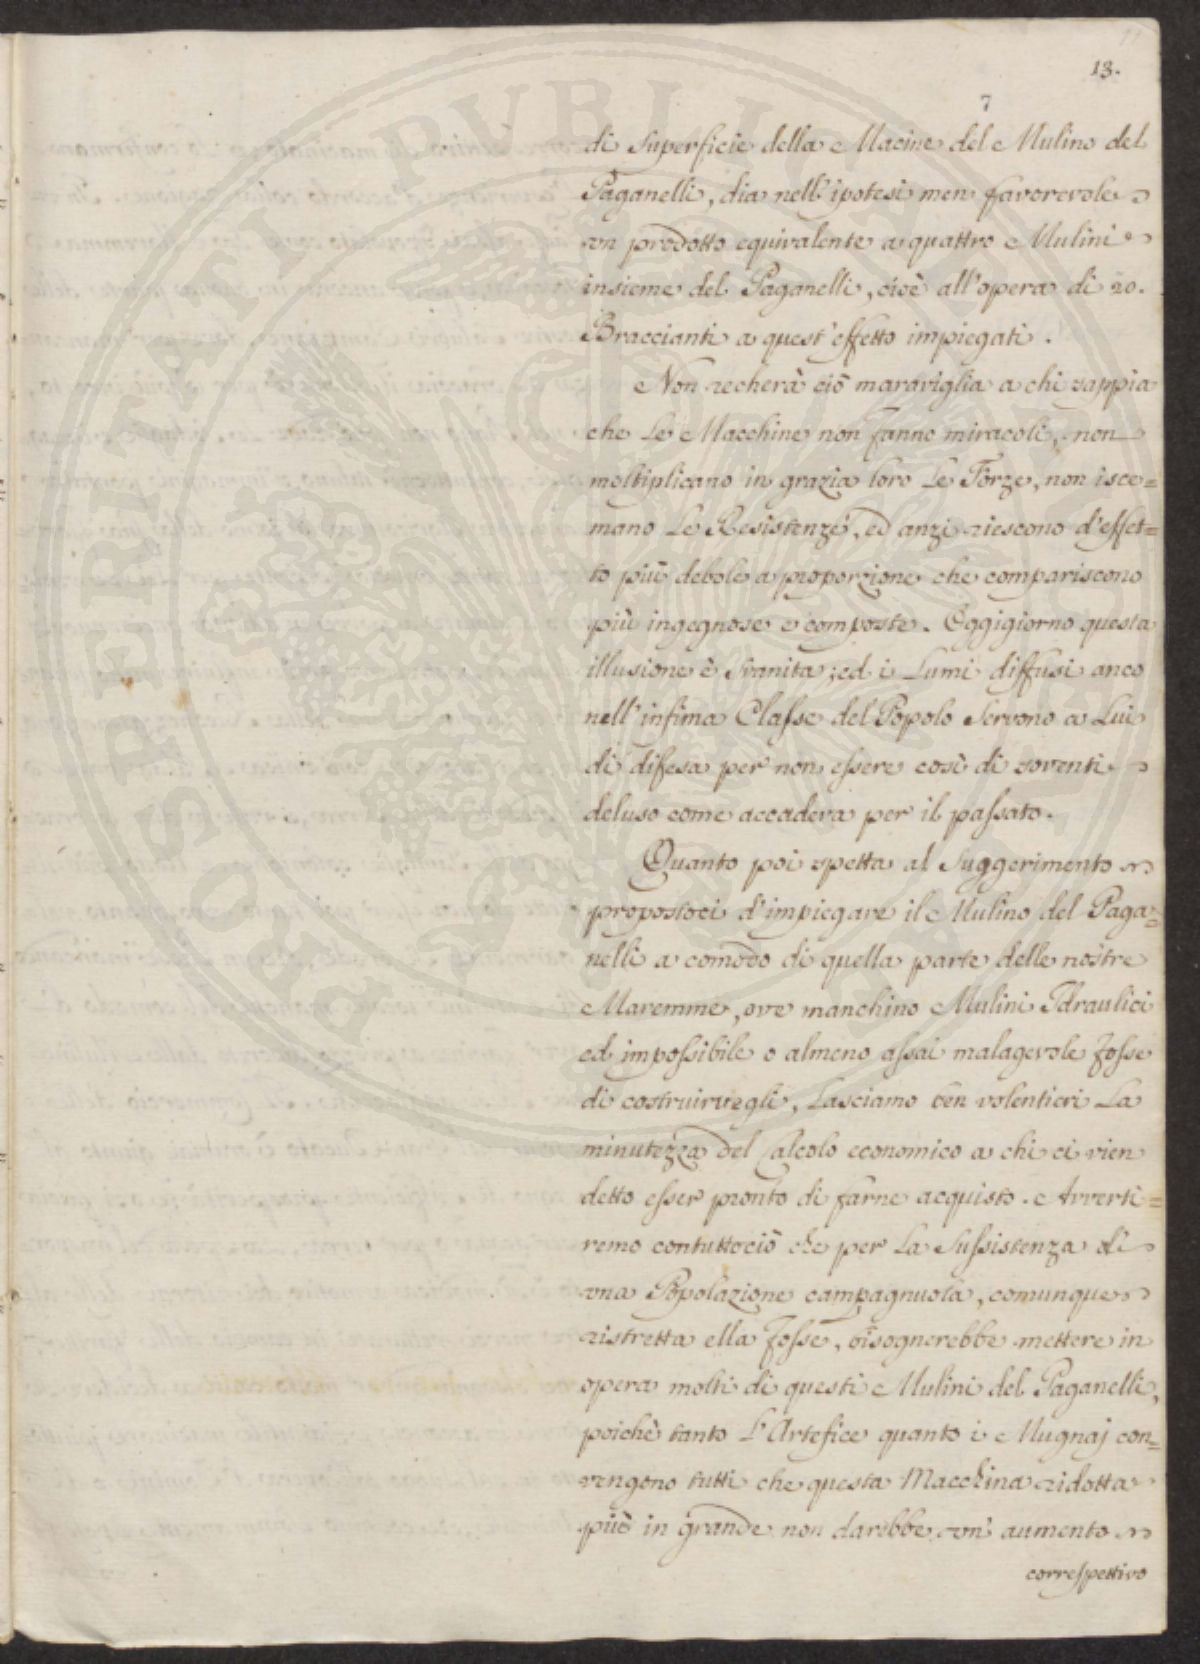 13.
7
di Superficie della Macine del Mulino del
Paganelli, dia nell'ipotesi men favorevole
un prodotto equivalente a quattro Mulini
insieme del Paganelli, cioè all'opera di 20.
Braccianti a quest'effetto impiegati.
Non recherà ciò maraviglia a chi sappia
che Le Macchine non fanno miracoli, non
moltiplicano in grazia loro Le Forze, non isce=
mano Le Resistenze, ed anzi riescono d'effet=
to più debole a proporzione che compariscono
più ingegnose e composte. Oggigiorno questa
illusione è Svanita; ed i Lumi diffusi anco
nell'infima Classe del Popolo Servono a Lui
di difesa per non essere così di soventi
deluso come accadeva per il passato.
Quanto poi spetta al Suggerimento
propostoci d'impiegare il Mulino del Paga=
nelli a comodo di quella parte delle nostre
Maremme, ove manchino Mulini Idraulici
ed impossibile o almeno assai malagevole fosse
di costruirvegli, Lasciamo ben volentieri La
minutezza del Calcolo economico a chi ci vien
detto esser pronto di farne acquisto. Averti=
remo contuttociò che per La Sussistenza di
una Popolazione campagnuola, comunque
ristretta ella fosse, bisognerebbe mettere in
opera molti di questi Mulini del Paganelli,
poichè tanto L'Artefice quanto i Mugnaj con=
vengono tutti che questa Macchina ridotta
più in grande non darebbe un aumento
correspettivo
PROSPERITATI PUBLICAE